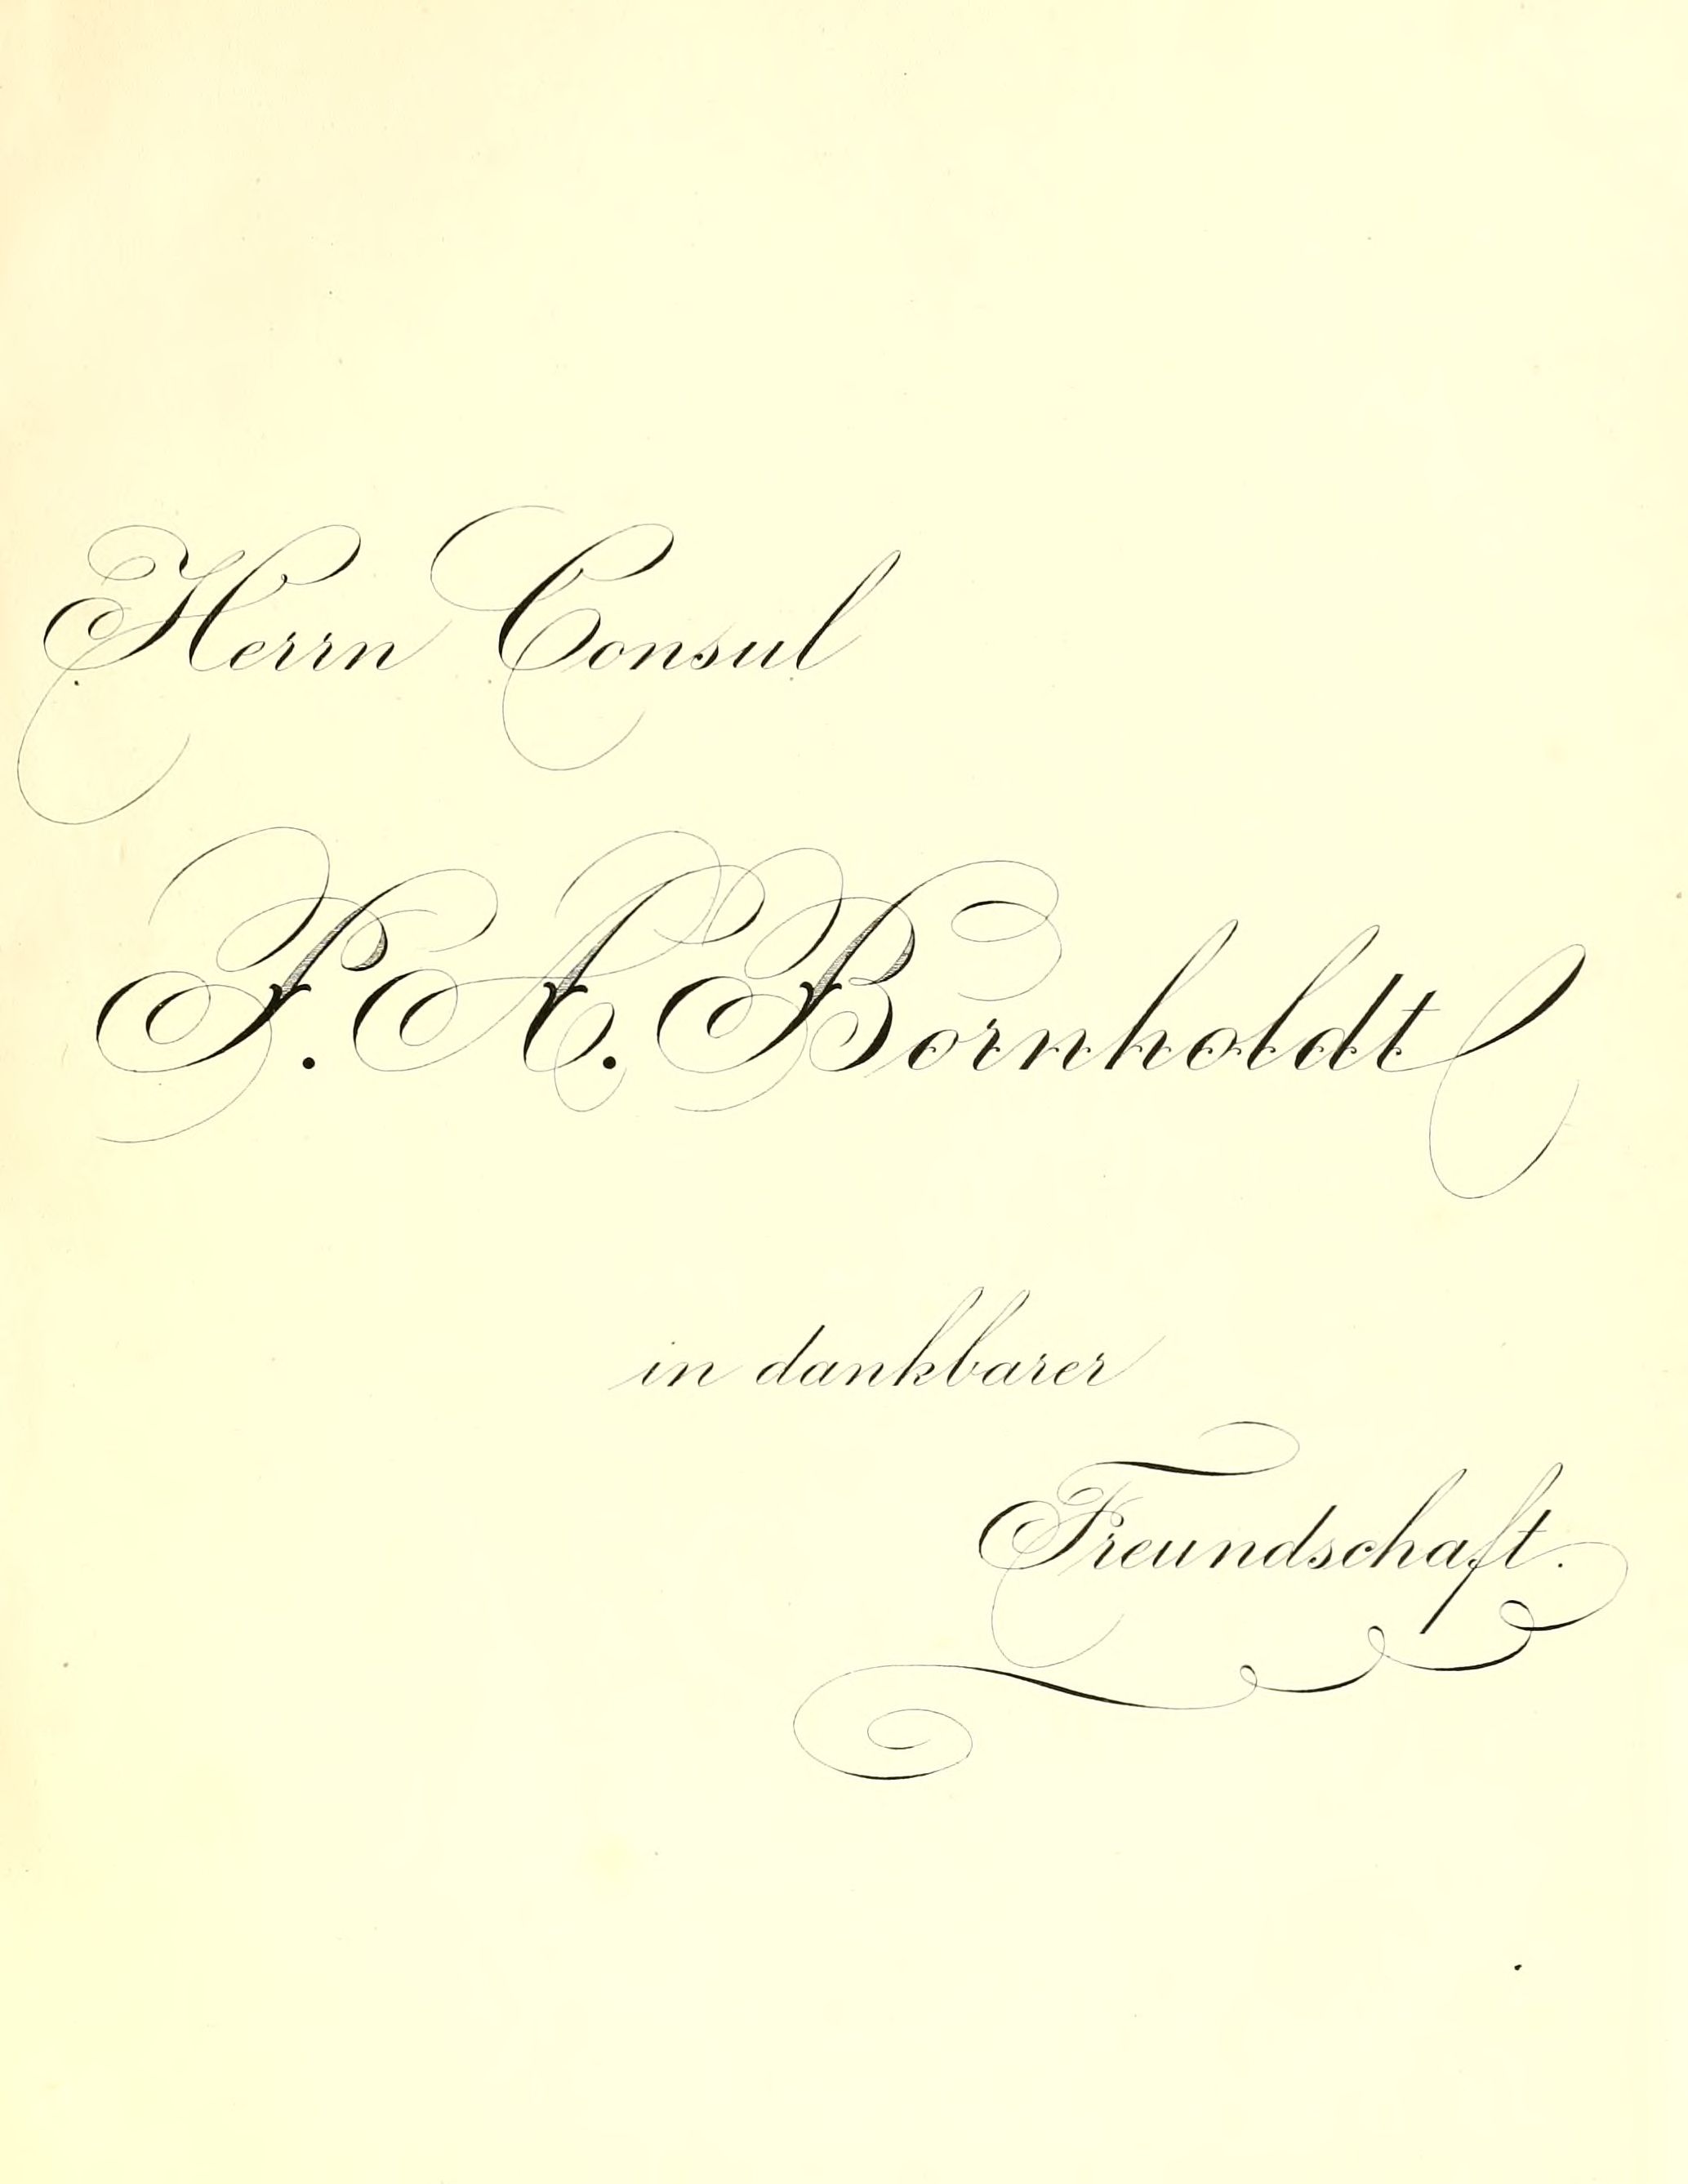 Herrn Consul
P. A. Bornholdt
in dankbarer
Freundschaft.